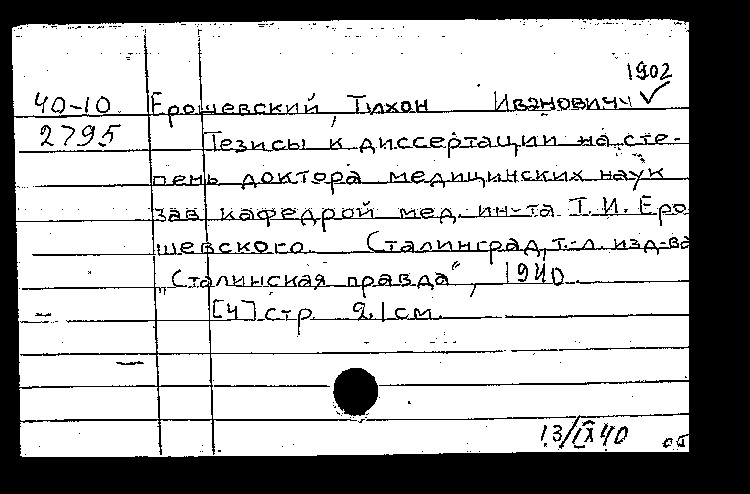 1902
40-10 Ерошевский, Тихон Иванович ✓
2795 Тезисы к диссертации на сте-
пень доктора медицинских наук
зав. кафедрой мед. ин-та Т. И. Еро
шевского. Сталинград, т.-л. изд-ва
„Сталинская правда", 1940.
[4] стр. 21 см.
13/IX 40